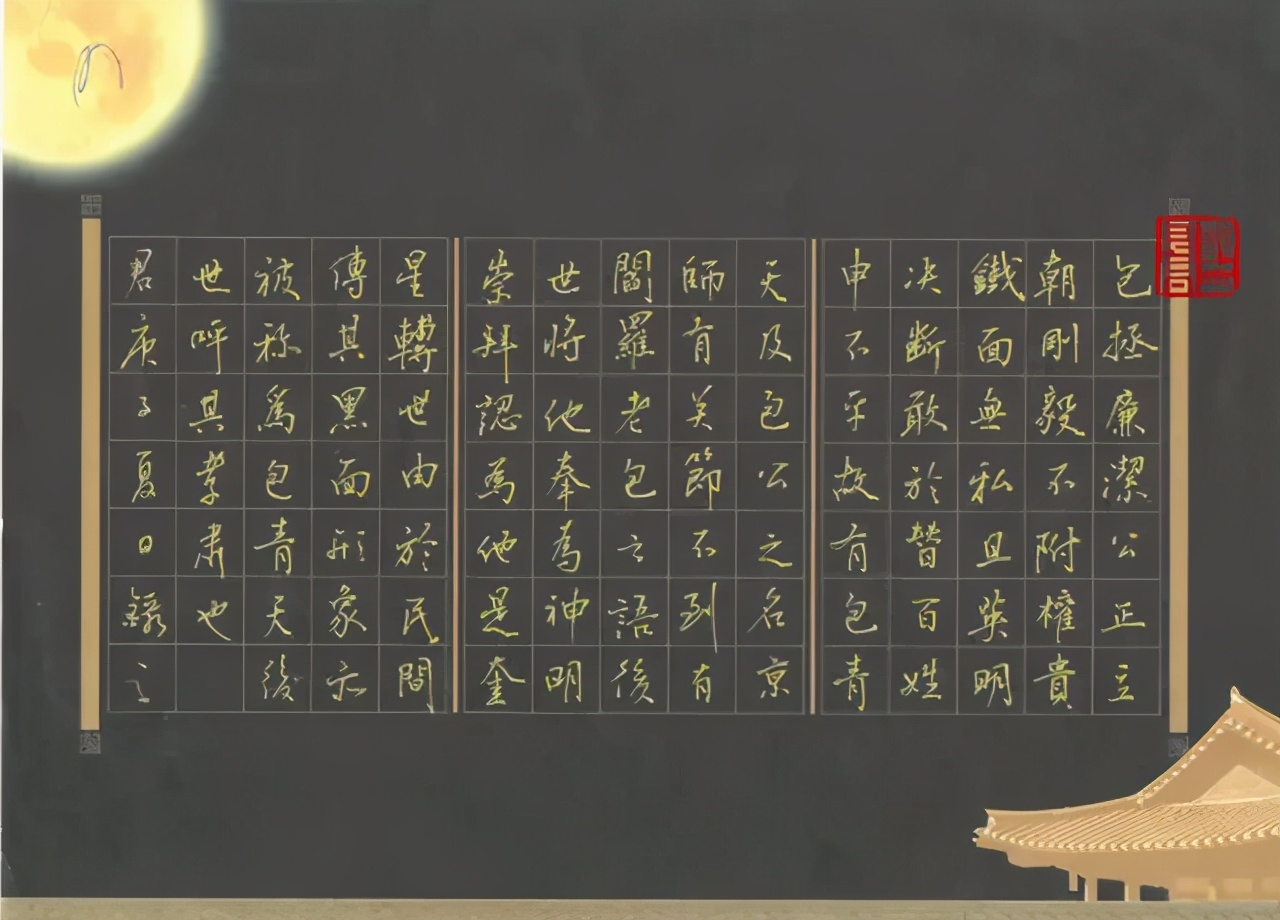 包拯廉潔公正立
朝剛毅不附權貴
鐵面無私且英明
决斷敢於替百姓
申不平故有包青
天及包公之名京
師有关節不到有
閻羅老包之語後
世將他奉為神明
崇拜認為他是奎
星轉世由於民間
傳其黑面形象亦
被称爲包青天後
世呼其孝肅也
君庚子夏日錄之